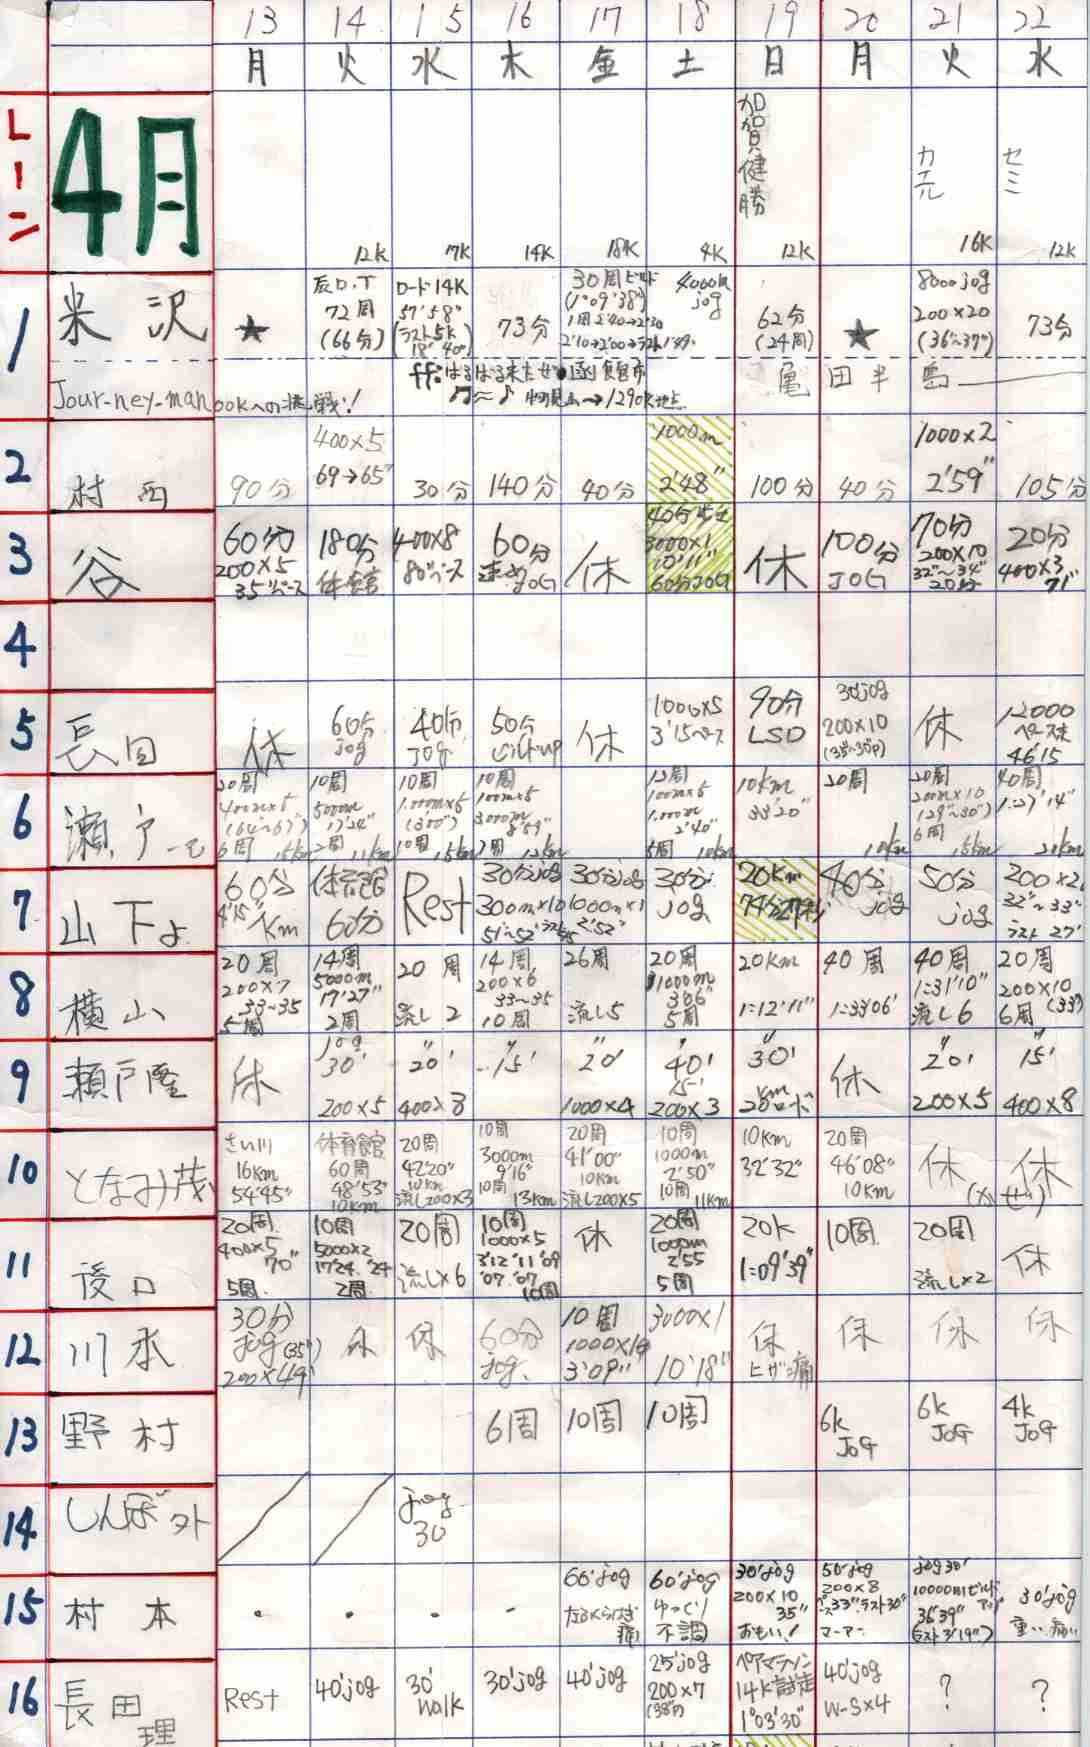 13 14 15 16 17 18 19 20 21 22
月 火 水 木 金 土 日 月 火 水
レーン 4月
加賀健勝
セミ
12K 17K 14K 18K 4K 12K 16K 12K
1 米沢
★
72周 (66分)
ロード14K 57'58" (ラスト5K 18'40")
73分
30周ビルド (1°09'38")
4000m jog
62分 (24周)
★
8000jog 200×20 (36"~37")
73分
Jour-ney-man
亀田半島
2 村西
90分
400×5 69→65"
30分
140分
40分
1000m 2'48"
100分
40分
1000×2 2'59"
105分
3 谷
60分 200×5 35"ペース
180分 体育館
400×8 80"ペース
60分 速め JOG
休
3000×1 10'11" 60分JOG
休
100分 JOG
70分 200×10 32"~34" 20分
20分 400×3 71"
4
5 長田
休
60分 jog
40分 jog
50分
休
1000×5 3'15ペース
90分 LSD
30jog 200×10
休
12000 4615
6 瀬戸一
20周 400m×5 6周 15km
10周 5000m 17'24" 2周 11km
10周 1.000m×5 (3'00") 10周 15km
10周 100m×5 3000m 8'59" 12km
12周 100m×5 1.000m 2'40" 5周 10km
10km 33'20"
20周 10km
20周 200m×10 (29"~30") 6周 15km
40周 1:27'14" 21km
7 山下よ
60分 4'15"/Km
体育館 60分
Rest
30分jog 300m×10 51"~52"
30分jog 1000m×1 2'52"
30分 jog
20Km
40分 jog
50分 jog
200×2 32"~33" ラスト27"
8 横山
20周 200×7 33~35 5周
14周 5000m 17'27" 2周
20周 流し2
14周 200×6 33~35 10周
26周 流し5
20周 1000m 306" 5周
20km 1:12'11"
40周 1:33'06"
40周 1:31'10" 流し6
20周 200×10 6周 (33")
9 瀬戸隆
休
jog 30' 200×5
" 20' 400×8
" 15'
" 20' 1000×4
" 40' 15' 200×3
" 30'
休
" 20' 200×5
" 15' 400×8
10 となみ茂
さい川 16km 54'45"
体育館 60周 48'53" 10km
20周 42'20" 10km 流し200×3
10周 3000m 9'16" 10km 10周 13km
20周 41'00" 10km 流し200×5
10周 1000m 2'50" 10周 11km
10km 32'32"
20周 46'08" 10km
休
休
(かぜ)
11 後口
20周 400×5 70" 5周
10周 5000×2 17'24. '24 2周
20周 流し×6
10周 1000×5 3'12 '11 '09 '07. '07 10周
休
20周 1000m 2'55 5周
20K 1:09'39"
10周
20周 流し×2
休
12 川本
30分 jog (35")
休
休
60分 jog
10周 3'09"
3000×1 10'18"
休 ヒザ痛
休
休
休
13 野村
6周
10周
10周
6k JoG
6k JoG
4k JoG
14 しんぼ外
jog 30
15 村本
60'jog
60'jog ゆっくり 不調
30'jog 200×10 35" おもい!
50'jog 200×8 33" ラスト30"
jog30' 10000mビルドアップ 36'39" (ラスト3'19")
30'jog 重い 痛い
16 長田理
Rest
40'jog
30' Walk
30'jog
40'jog
25'jog 200×7
ペアマラソン 14K試走 1°03'30"
40'jog W-S×4
?
?